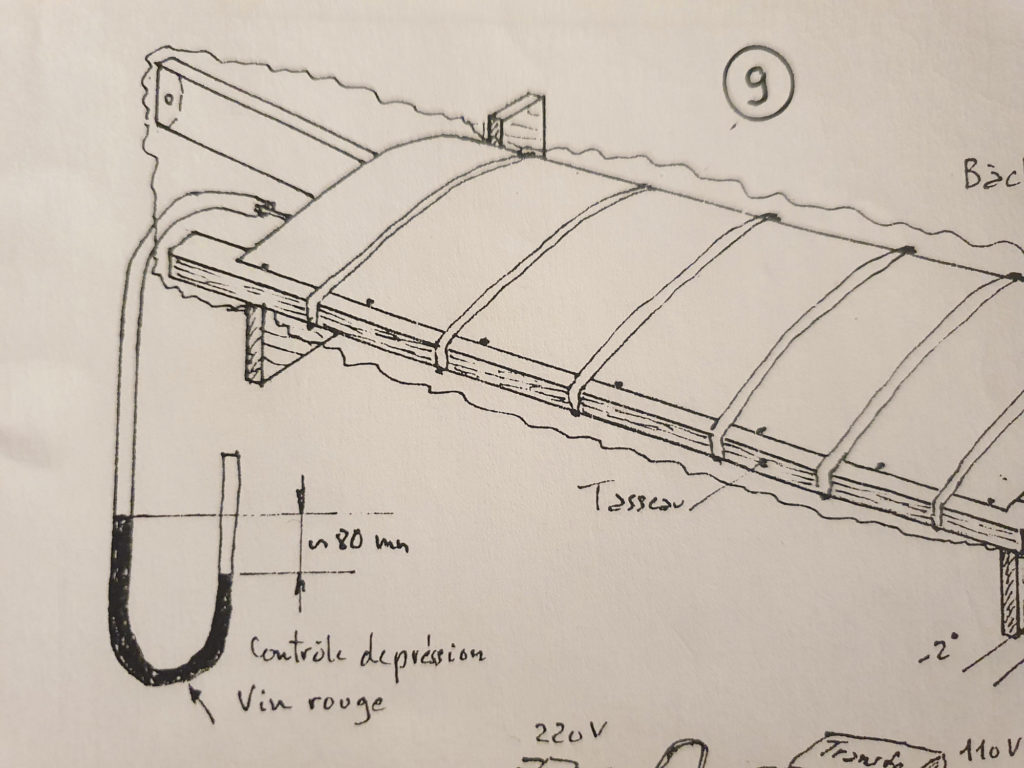 9
Bâc
Tasseau
~ 80 mm
-2°
Contrôle depréssion
Vin rouge
220V
Transfo
110V